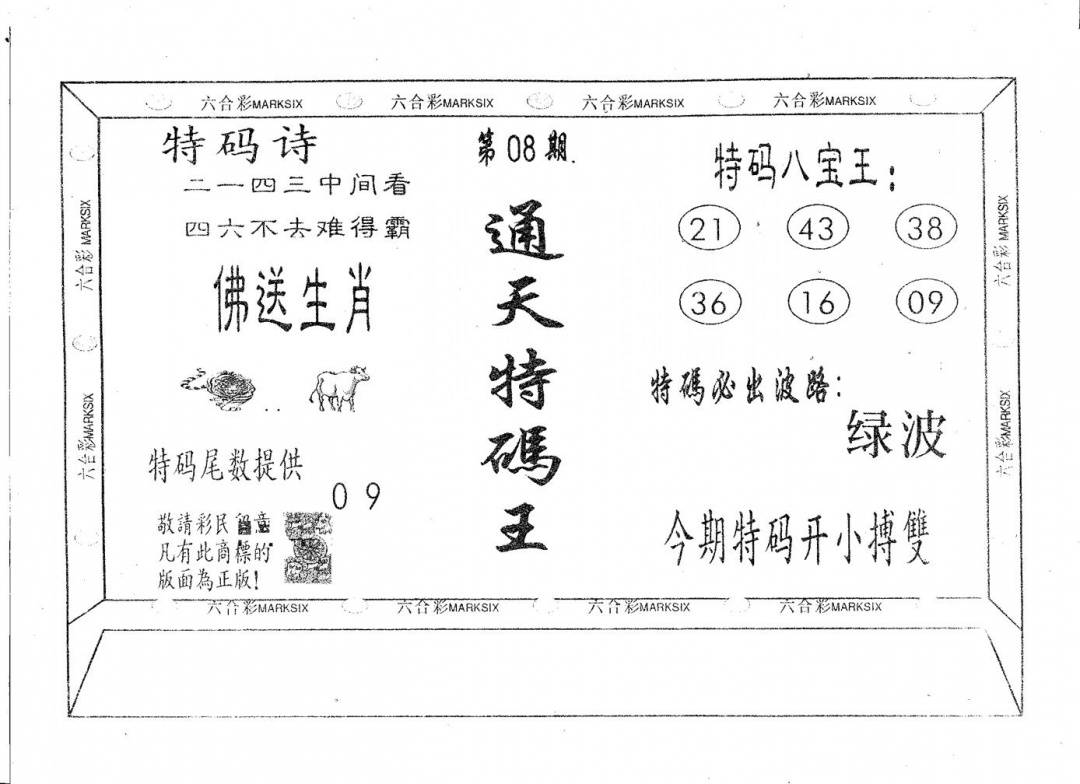 六合彩MARKSIX 六合彩MARKSIX 六合彩MARKSIX 六合彩MARKSIX
特码诗
二一四三中间看
四六不去难得霸
佛送生肖
特码尾数提供
0 9
敬請彩民留意
凡有此商標的
版面為正版!
第08期
通天特碼王
特码八宝王:
21 43 38
36 16 09
特碼必出波路:
绿波
今期特码开小搏雙
六合彩MARKSIX
六合彩MARKSIX
六合彩MARKSIX
六合彩MARKSIX
六合彩MARKSIX 六合彩MARKSIX 六合彩MARKSIX 六合彩MARKSIX